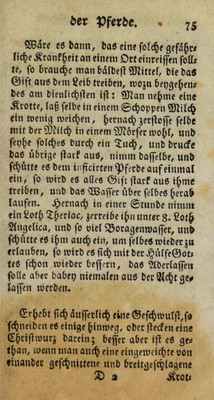 der Pferde. 75
Wäre es dann, das eine solche gefähr-
liche Krankheit an einem Ort einreissen soll-
te, so brauche man bäldest Mittel, die das
Gift aus dem Leib treiben, wozu beygehen-
des am dienlichsten ist: Man nehme eine
Krotte, laß selbe in einem Schoppen Milch
ein wenig weichen, hernach zerstosse selbe
mit der Milch in einem Mörser wohl, und
seyhe solches durch ein Tuch, und drucke
das übrige stark aus, nimm dasselbe, und
schütte es dem inficirten Pferde auf einmal
ein, so wird es alles Gift stark aus ihme
treiben, und das Wasser über selbes herab
laufen. Hernach in einer Stunde nimm
ein Loth Theriac, zerreibe ihn unter 3. Loth
Angelica, und so viel Boragenwasser, und
schütte es ihm auch ein, um selbes wieder zu
erlauben, so wird es sich mit der Hülfe Got-
tes schon wieder bessern, das Aderlassen
solle aber dabey niemalen aus der Acht ge-
lassen werden.
Erhebt sich äusserlich eine Geschwulst, so
schneiden es einige hinweg, oder stecken eine
Christwurz darein; besser aber ist es ge-
than, wenn man auch eine eingeweichte von
einander geschnittene und breitgeschlagene
D 2 Krot-